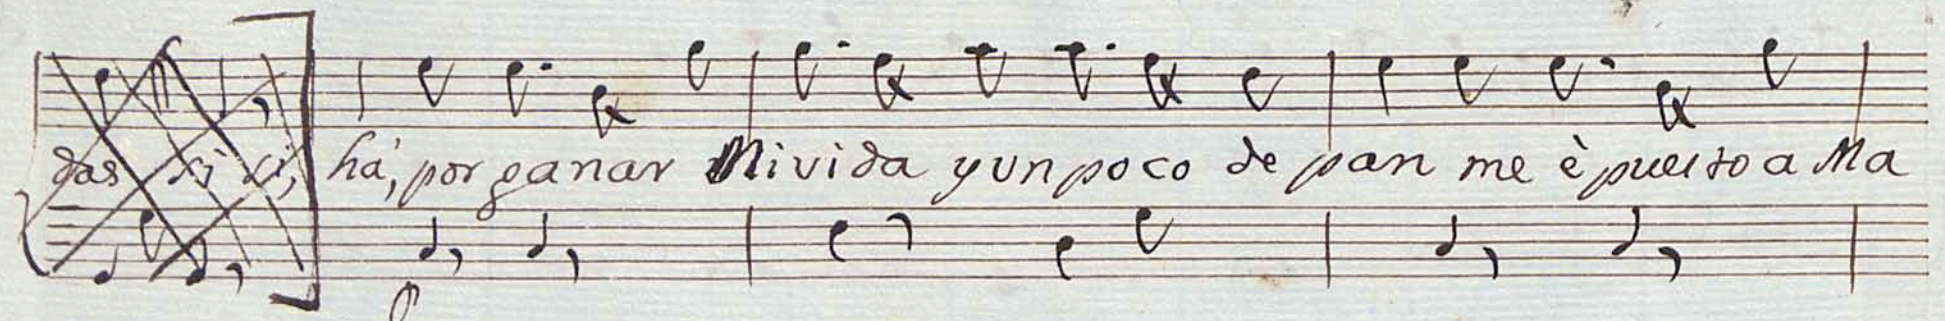 das si si, há, por ganar Mi vida y un poco de pan me è puesto a Ma